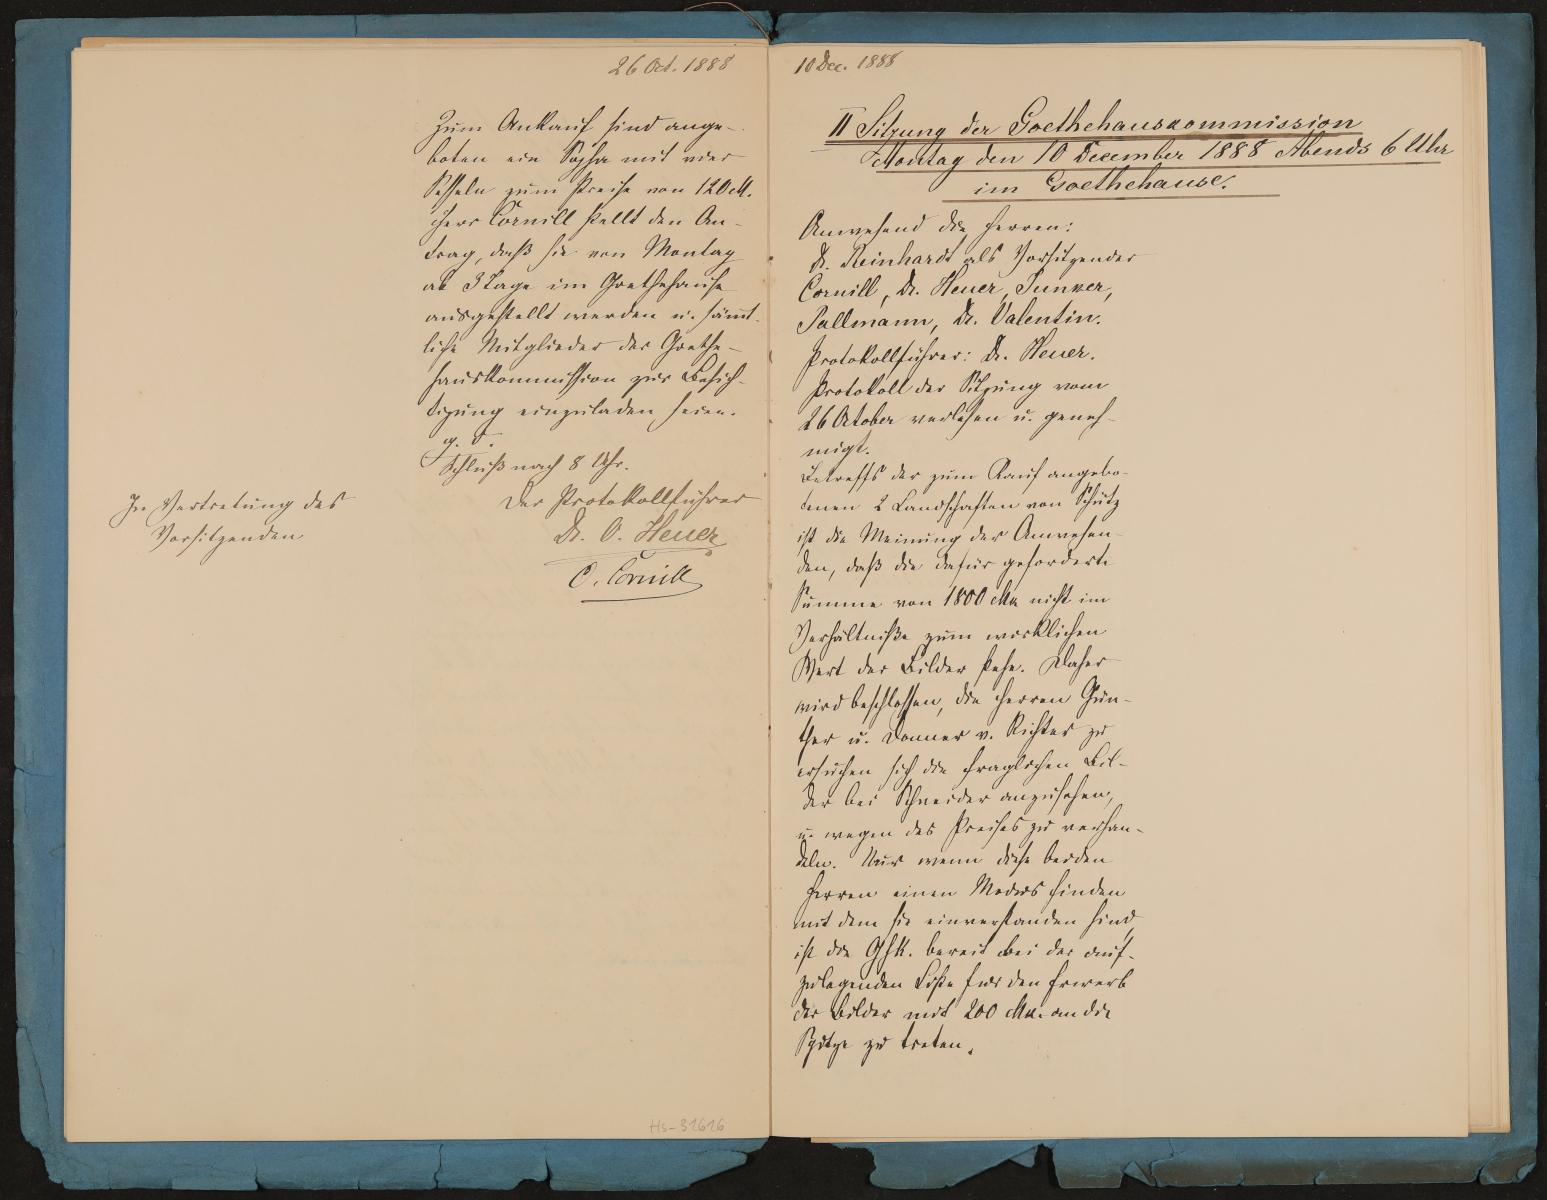 26 Oct. 1888
Zum Ankauf sind ange-
boten ein Sopha mit vier
Sesseln zum Preise von 120 M.
Herr Cornill stellt den An-
trag, daß sie von Montag
ab 3 Tage im Goethehause
ausgestellt werden u. sämmt-
liche Mitglieder der Goethe-
hauskommission zur Besich-
tigung einzuladen seien.
Schluß nach 8 Uhr.
Der Protokollführer
Dr. O. Heuer
In Vertretung des
Vorsitzenden
O. Cornill
Hs-31616
10 Dec. 1888
II Sitzung der Goethehauskommission
Montag den 10 December 1888 Abends 6 Uhr
im Goethehause.
Anwesend die Herren:
Dr. Reinhardt als Vorsitzender
Cornill, Dr. Heuer, Junker,
Pallmann, Dr. Valentin.
Protokollführer: Dr. Heuer.
Protokoll der Sitzung vom
26 October verlesen u. geneh-
migt.
Betreffs der zum Kauf angebo-
tenen 2 Landschaften von Schütz
ist die Meinung der Anwesen-
den, daß die dafür geforderte
Summe von 1800 Mk nicht im
Verhältniße zum wirklichen
Wert der Bilder stehe. Daher
wird beschlossen, die Herren Gün-
ther u. Donner v. Richter zu
ersuchen sich die fraglichen Bil-
der bei Schneider anzusehen,
u. wegen des Preises zu verhan-
deln. Nur wenn diese beiden
Herren einen Modus finden
mit dem sie einverstanden sind,
ist die GhK. bereit bei der auf-
zulegenden Liste für den Erwerb
der Bilder mit 200 Mk. an die
Spitze zu treten.